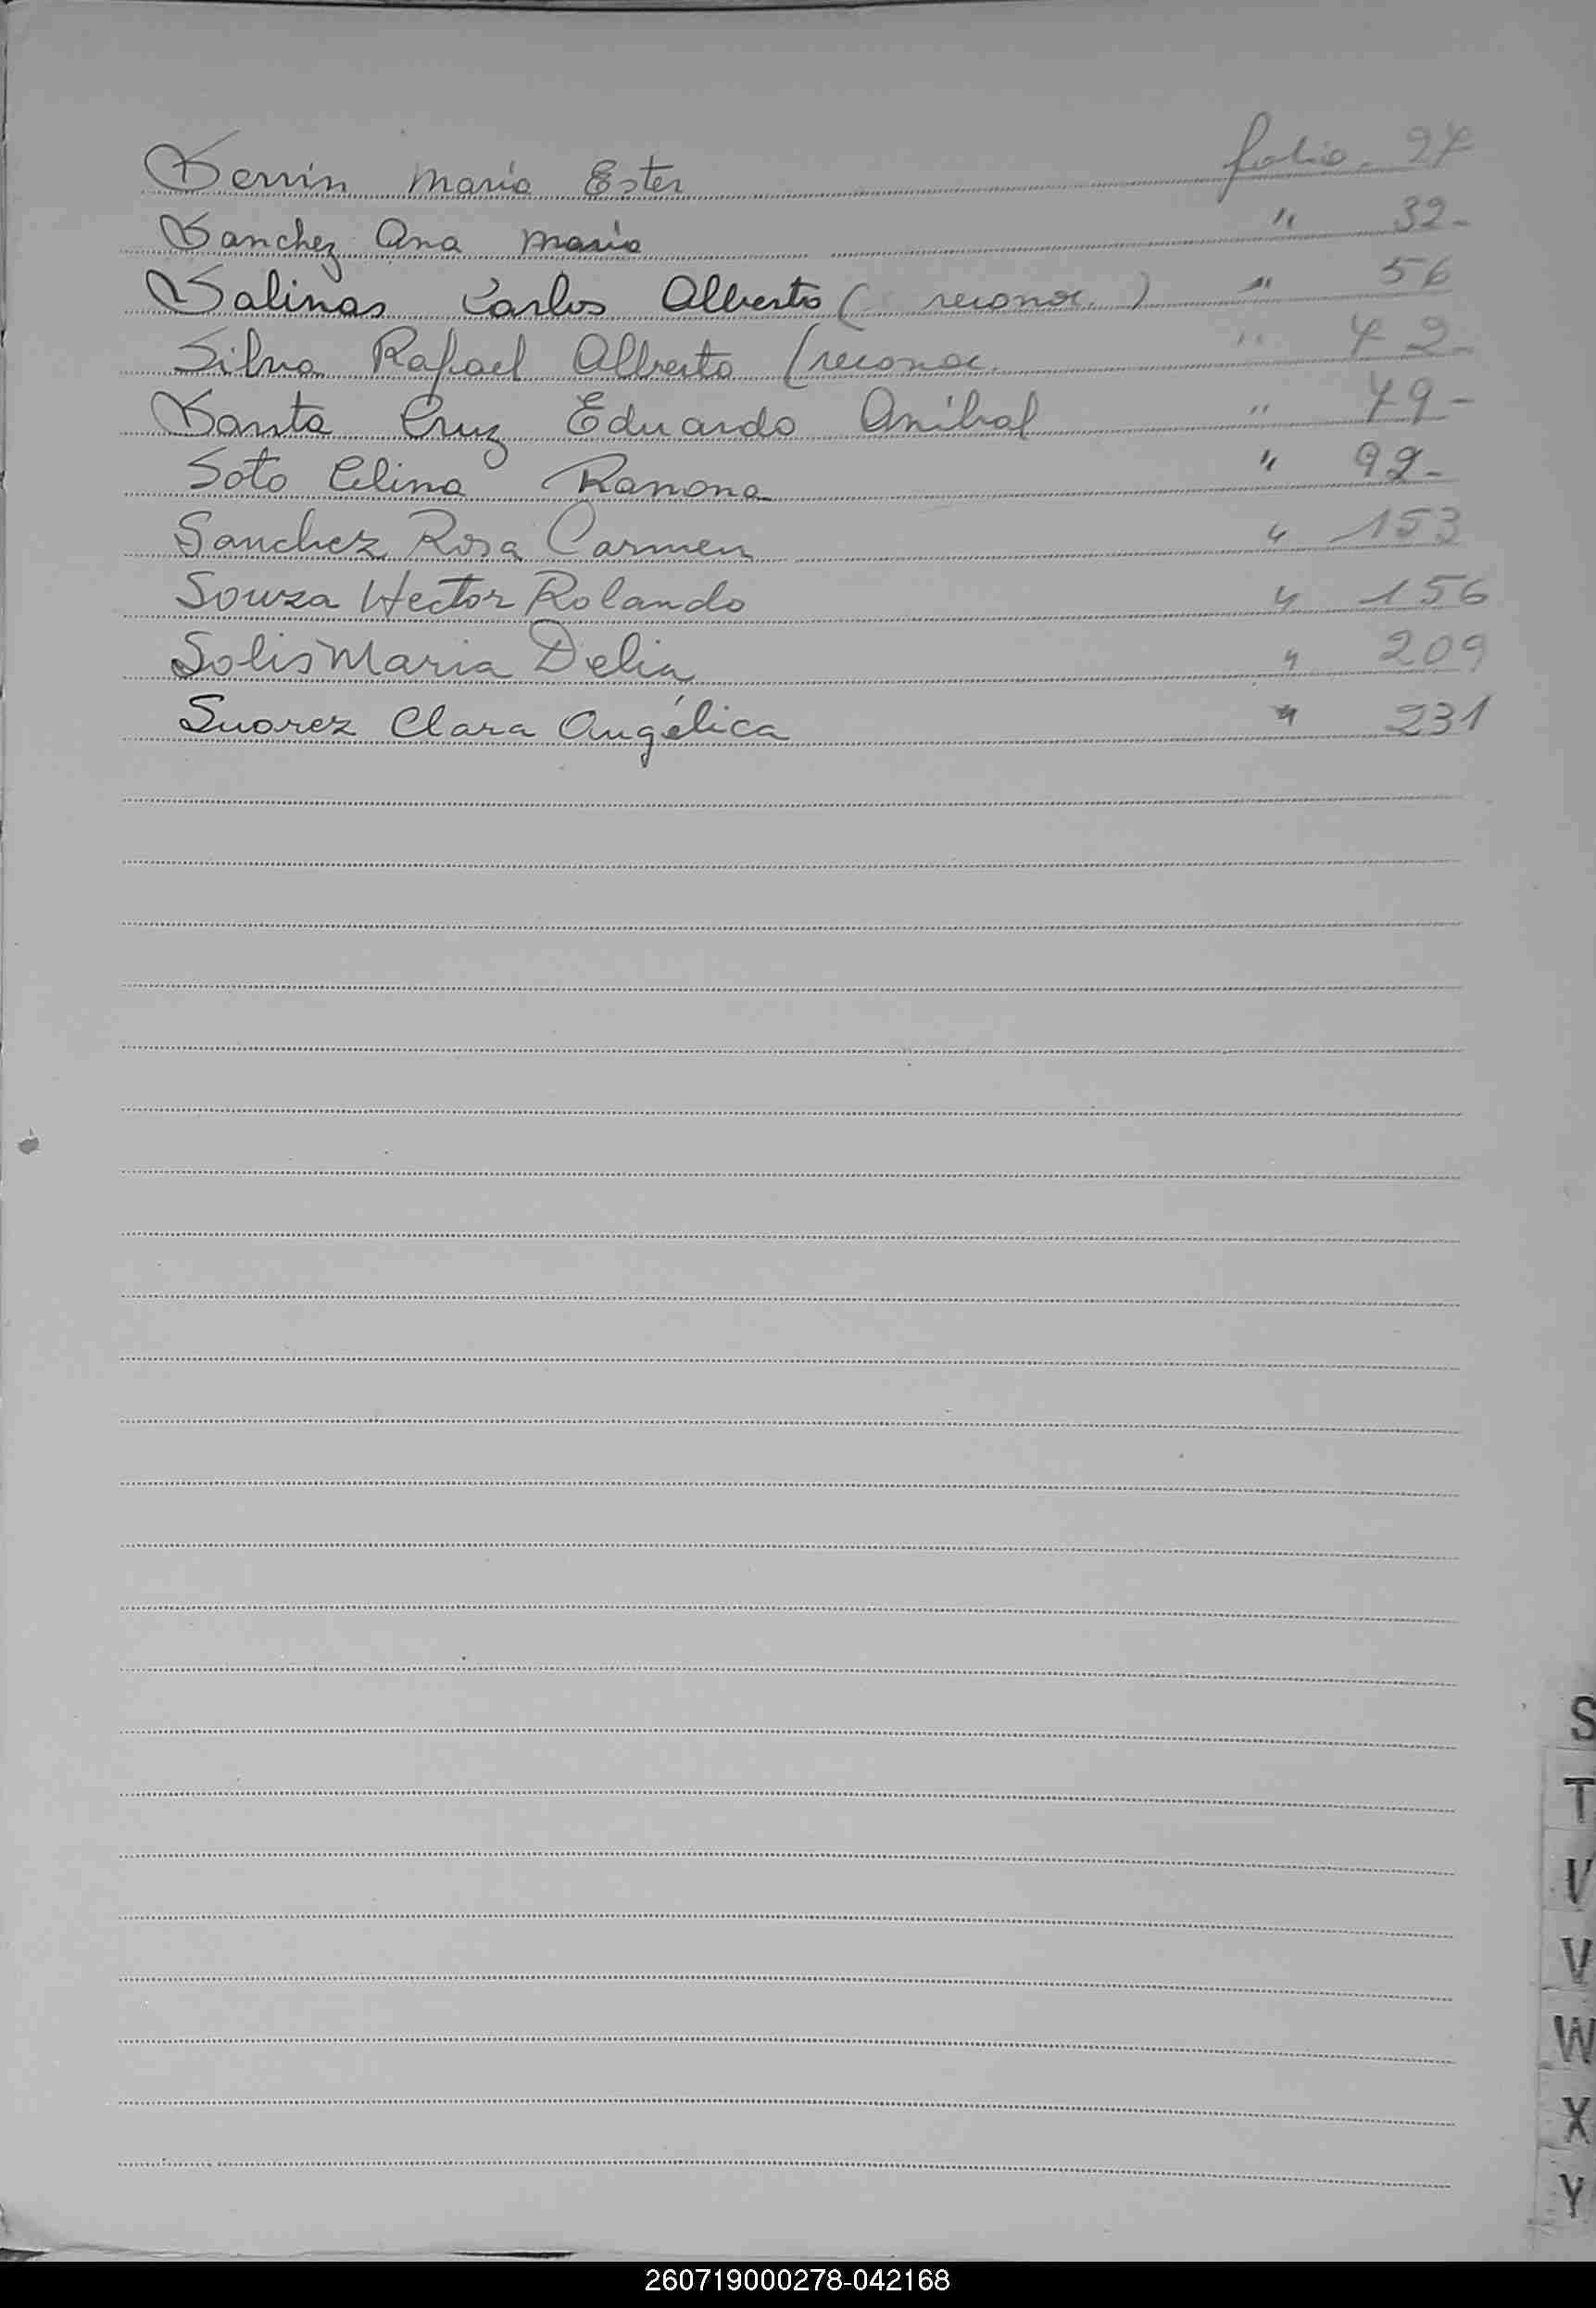 Serrin Maria Ester folio - 27
Sanchez Ana Maria " 32-
Salinas Carlos Alberto ( reconoc. ) " 56
Silva Rafael Alberto (reconoc. " 72-
Santa Cruz Eduardo Anibal " 79-
Soto Celina Ramona " 92-
Sanchez Rosa Carmen " 153
Souza Hector Rolando " 156
Solis Maria Delia " 209
Suarez Clara Angélica " 231
S
T
V
V
W
X
Y
260719000278-042168